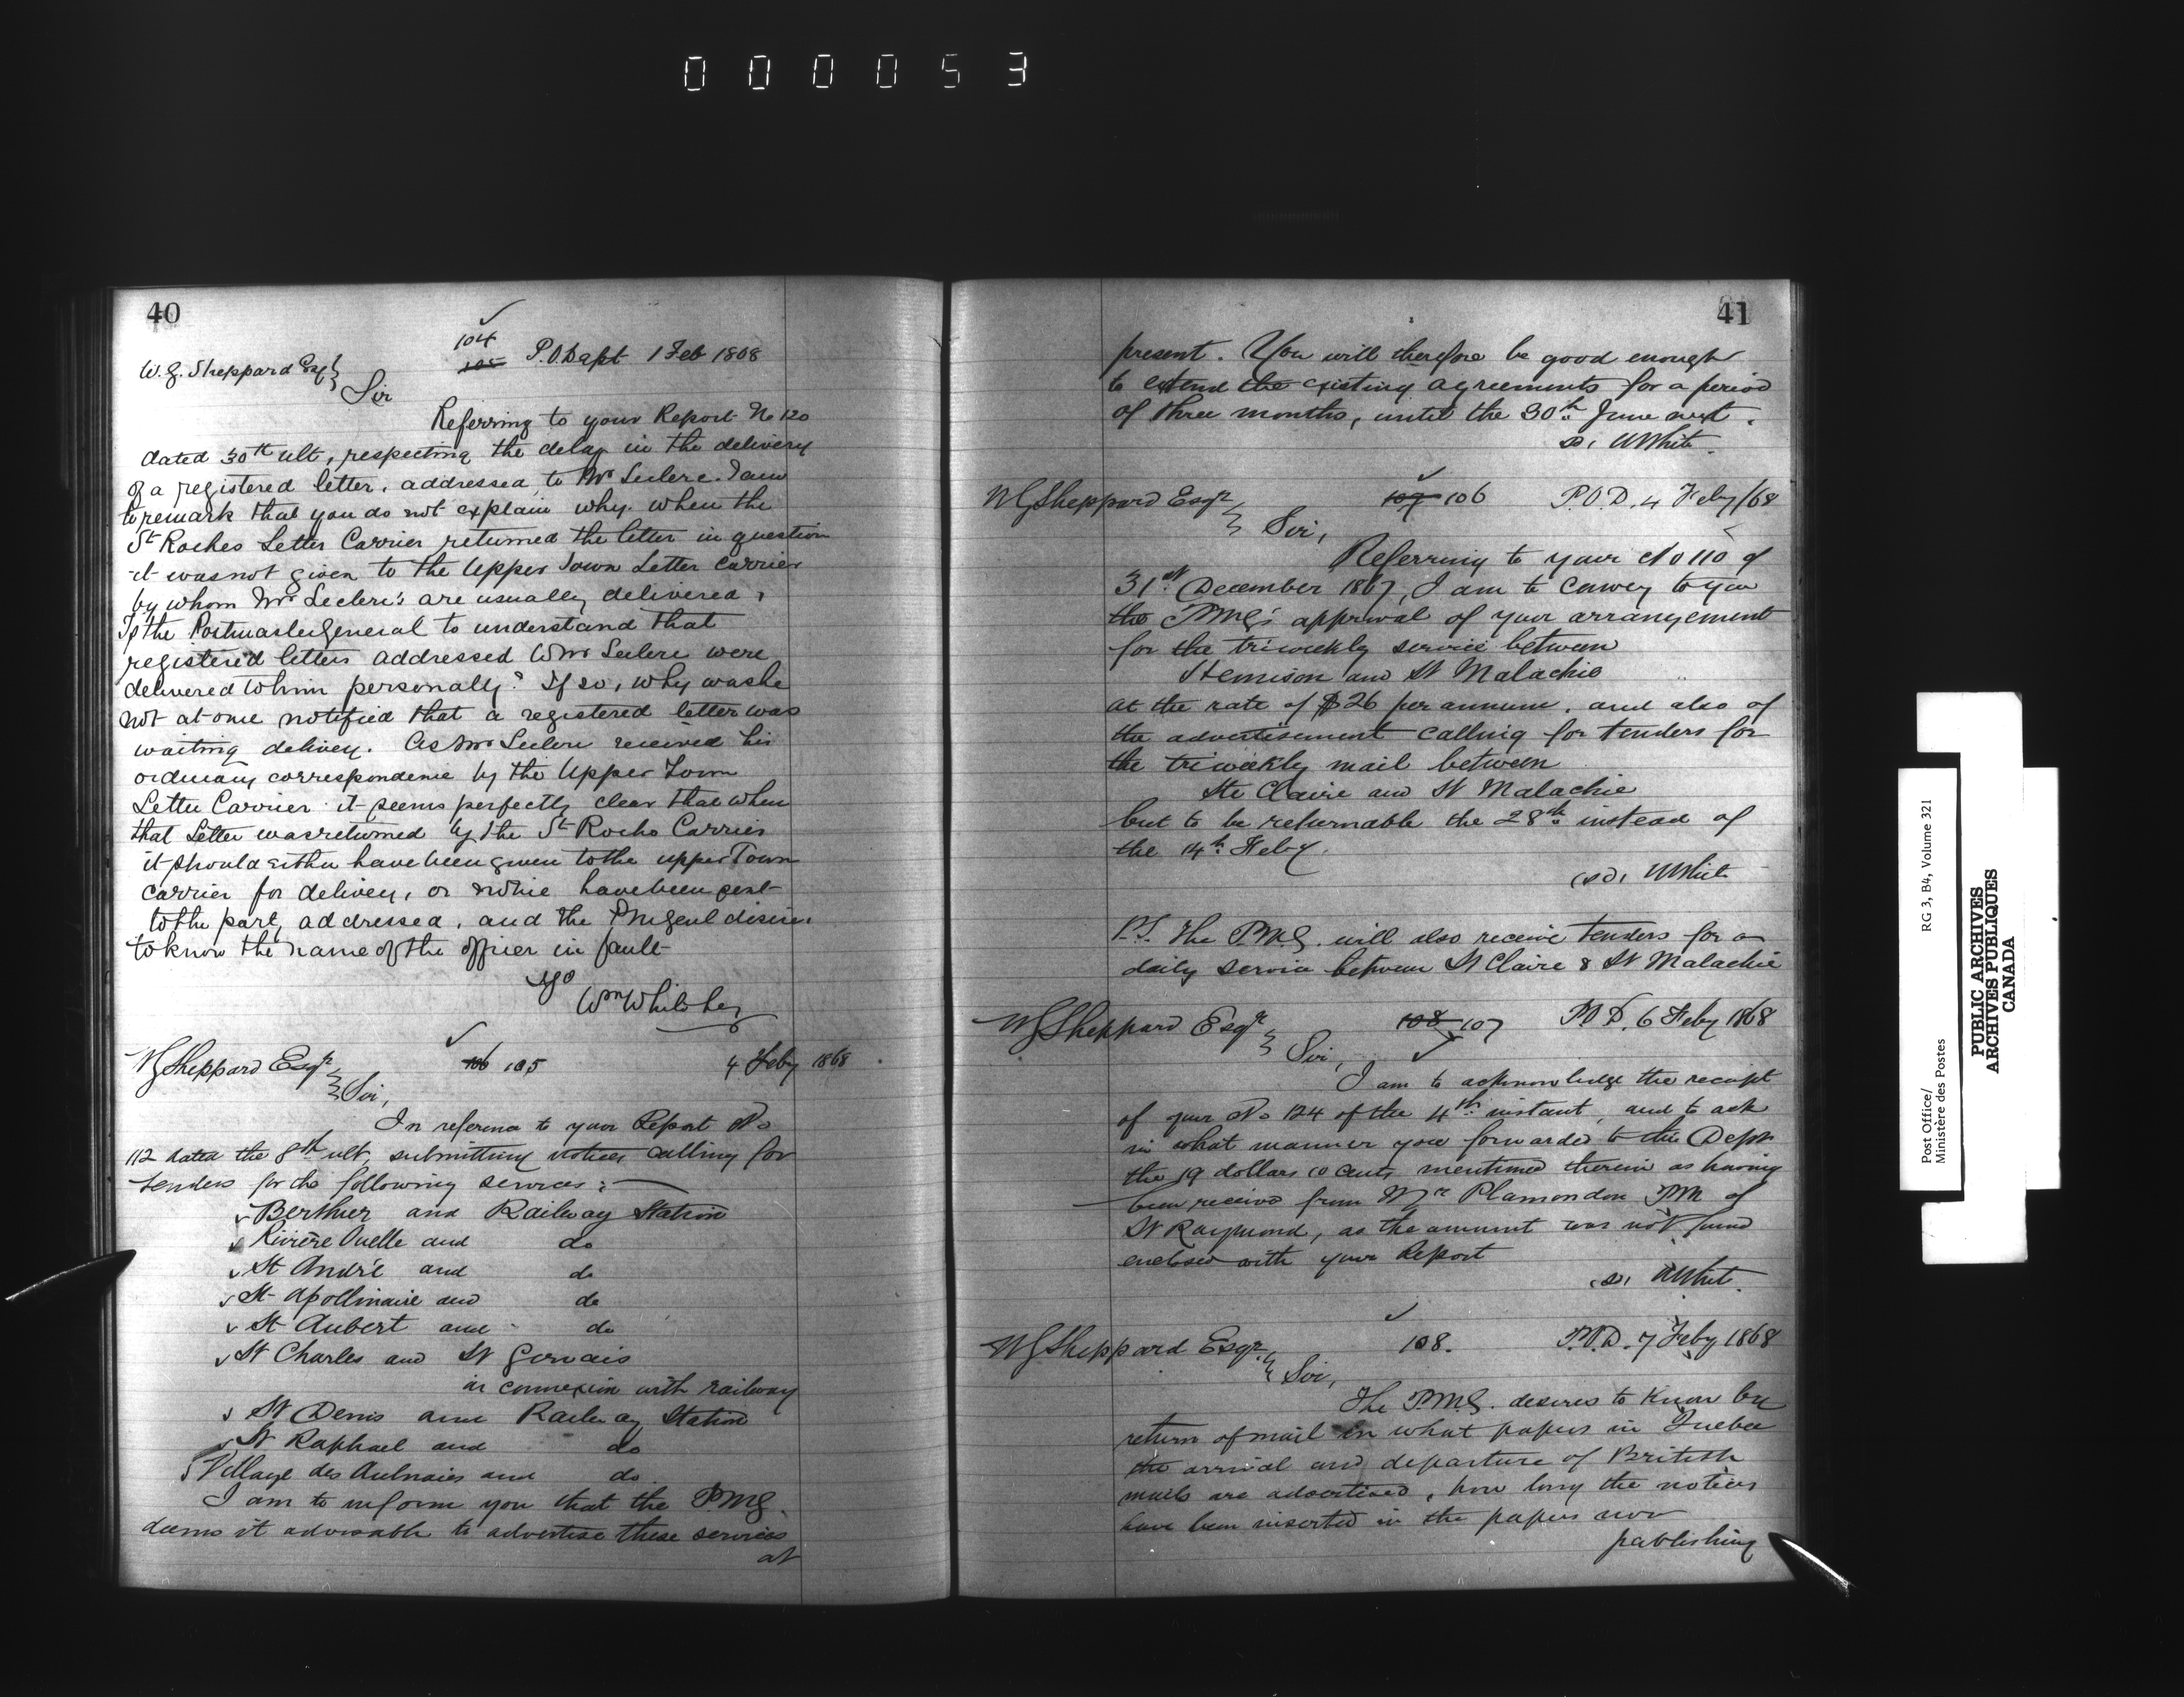 000053
40
104
105 P.O.Dept 1 Feb 1868
W.G. Sheppard Esq
Sir
Referring to your Report No 120
dated 30th ult, respecting the delay in the delivery
of a registered letter, addressed to Mr Leclerc. I am
to remark that you do not explain why when the
St Roches Letter Carrier returned the letter in question
it was not given to the Upper Town Letter carrier
by whom Mr Leclerc's are usually delivered,
Is the Postmaster General to understand that
registered letters addressed to Mr Leclerc were
delivered to him personally? If so, why was he
not at once notified that a registered letter was
waiting delivery. As Mr Leclerc received his
ordinary correspondence by the Upper Town
Letter Carrier it seems perfectly clear that when
that Letter was returned by the St Rochs Carrier
it should either have been given to the upper Town
carrier for delivery, or notice have been sent
to the party addressed, and the PMGenl desires
to know the name of the officer in fault
Wm White
WGSheppard Esqr 106 105 4 Feby 1868
Sir,
In reference to your Report No
112 dated the 8th ult, submitting notices calling for
tenders for the following services:—
Berthier and Railway Station
Rivière Ouelle and do
St André and do
St Apollinaire and do
St Aubert and do
St Charles and St Gervais
in connexion with railway
St Denis and Railway Station
St Raphael and do
Village des Aulnaies and do
I am to inform you that the PMG.
deems it advisable to advertise these services
at
41
present. You will therefore be good enough
to extend the existing agreements for a period
of three months, until the 30th June next.
sd, WWhite.
WGSheppard Esqr 107 106 P.O.D. 4 Feby/68
Sir,
Referring to your No 110 of
31st December 1867, I am to convey to you
the PMG's approval of your arrangement
for the triweekly service between
Hemison and St Malachie
at the rate of $26 per annum, and also of
the advertisement calling for tenders for
the triweekly mail between
Ste Claire and St Malachie
but to be returnable the 28th instead of
the 14th Feby.
(sd, WWhite
P.S. The P.M.G. will also receive tenders for a
daily service between St Claire & St Malachie
WGSheppard Esqr 108 107 P.O.D. 6 Feby 1868
Sir,
I am to acknowledge the receipt
of your No 124 of the 4th instant, and to ask
in what manner you forwarded to the Dept
the 19 dollars 10 cents mentioned therein as having
been received from Mr Plamondon PM of
St Raymond, as the amount was not found
enclosed with your Report
(sd, WWhite.
WGSheppard Esqr. 108. P.O.D. 7 Feby 1868
Sir,
The P.M.G. desires to know by
return of mail in what papers in Quebec
the arrival and departure of British
mails are advertised, how long the notices
have been inserted in the papers now
publishing
Post Office/
Ministère des Postes
RG 3, B4, Volume 321
PUBLIC ARCHIVES
ARCHIVES PUBLIQUES
CANADA